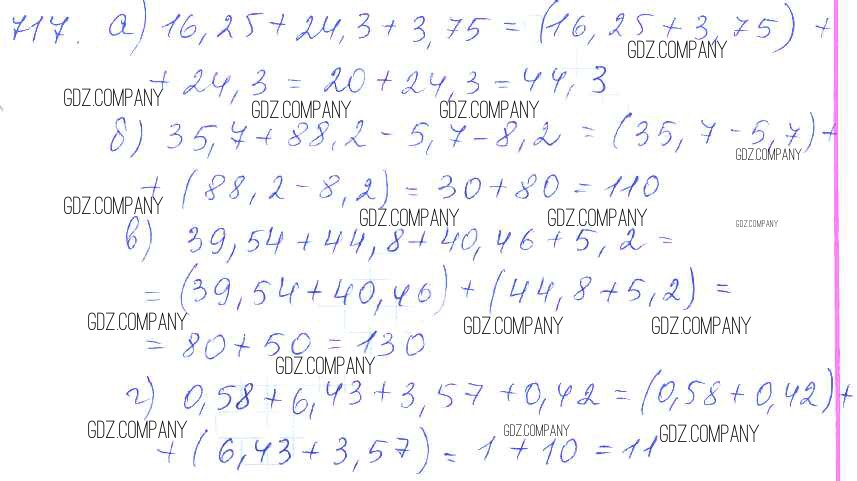 717. а) 16,25 + 24,3 + 3,75 = (16,25 + 3,75) +
GDZ.COMPANY
+ 24,3 = 20 + 24,3 = 44,3
GDZ.COMPANY GDZ.COMPANY GDZ.COMPANY
б) 35,7 + 88,2 - 5,7 - 8,2 = (35,7 - 5,7) +
GDZ.COMPANY
+ (88,2 - 8,2) = 30 + 80 = 110
GDZ.COMPANY GDZ.COMPANY GDZ.COMPANY GDZ.COMPANY
в) 39,54 + 44,8 + 40,46 + 5,2 =
= (39,54 + 40,46) + (44,8 + 5,2) =
GDZ.COMPANY GDZ.COMPANY GDZ.COMPANY
= 80 + 50 = 130
GDZ.COMPANY
г) 0,58 + 6,43 + 3,57 + 0,42 = (0,58 + 0,42) +
GDZ.COMPANY GDZ.COMPANY GDZ.COMPANY
+ (6,43 + 3,57) = 1 + 10 = 11